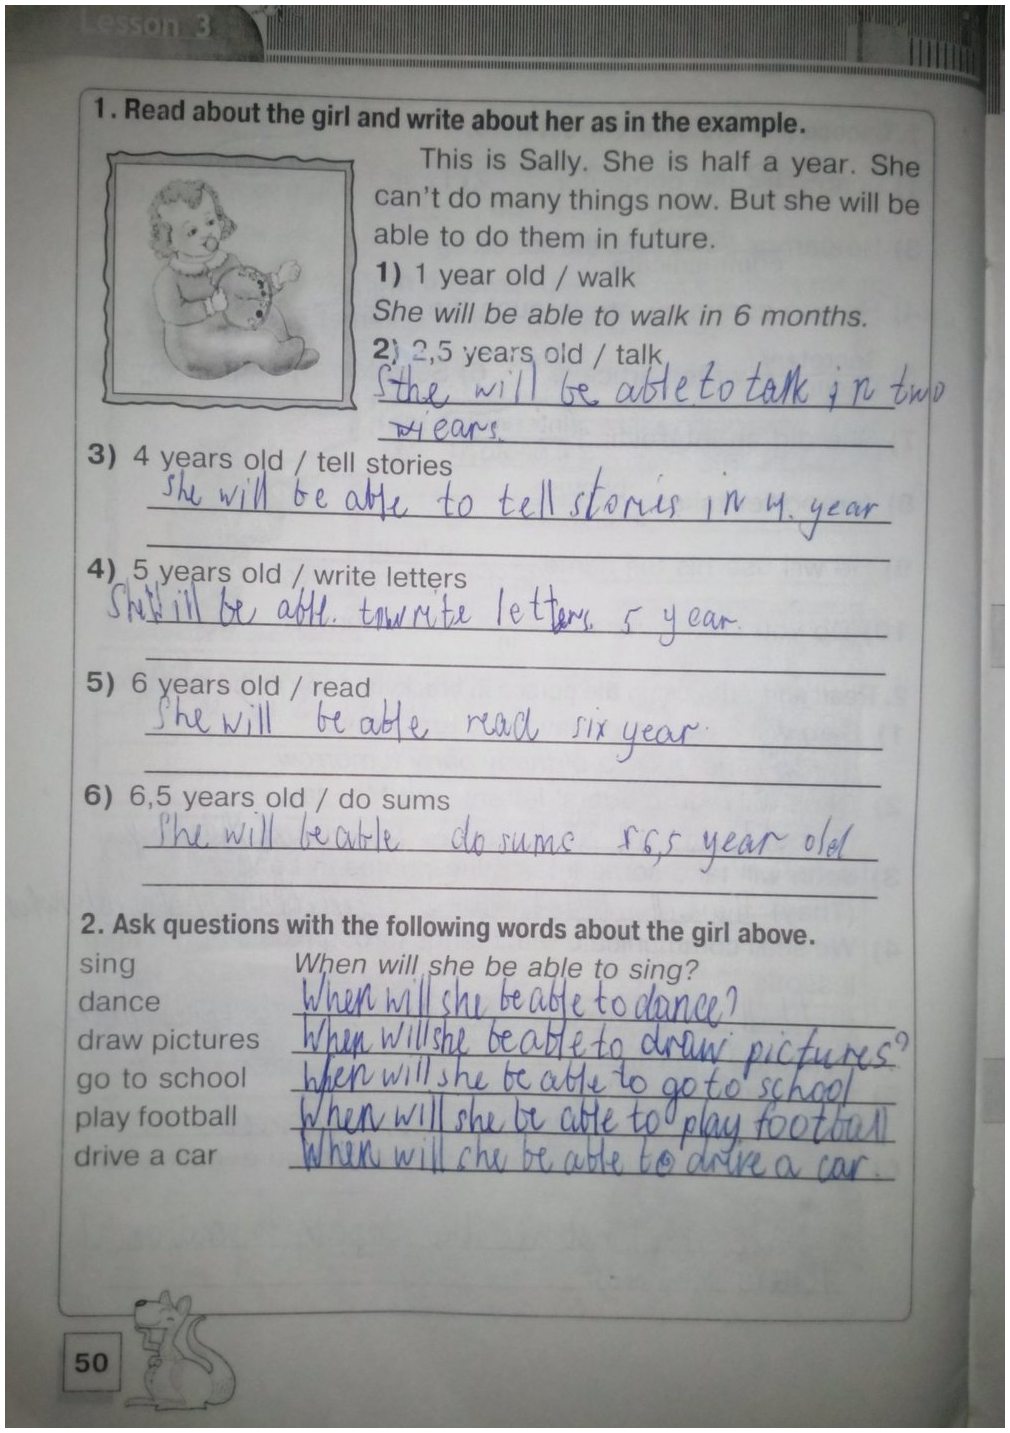 Lesson 3
1. Read about the girl and write about her as in the example.
This is Sally. She is half a year. She
can't do many things now. But she will be
able to do them in future.
1) 1 year old / walk
She will be able to walk in 6 months.
2) 2,5 years old / talk
Sthe will be able to talk in two
years.
3) 4 years old / tell stories
She will be able to tell stories in 4. year
4) 5 years old / write letters
She Will be able. to write letters. 5 year.
5) 6 years old / read
She will be able read six year.
6) 6,5 years old / do sums
She will be able do sums 6,5 year old
2. Ask questions with the following words about the girl above.
sing When will she be able to sing?
dance When will she be able to dance?
draw pictures When will she be able to draw pictures?
go to school When will she be able to go to school
play football When will she be able to play football
drive a car When will she be able to drive a car.
50